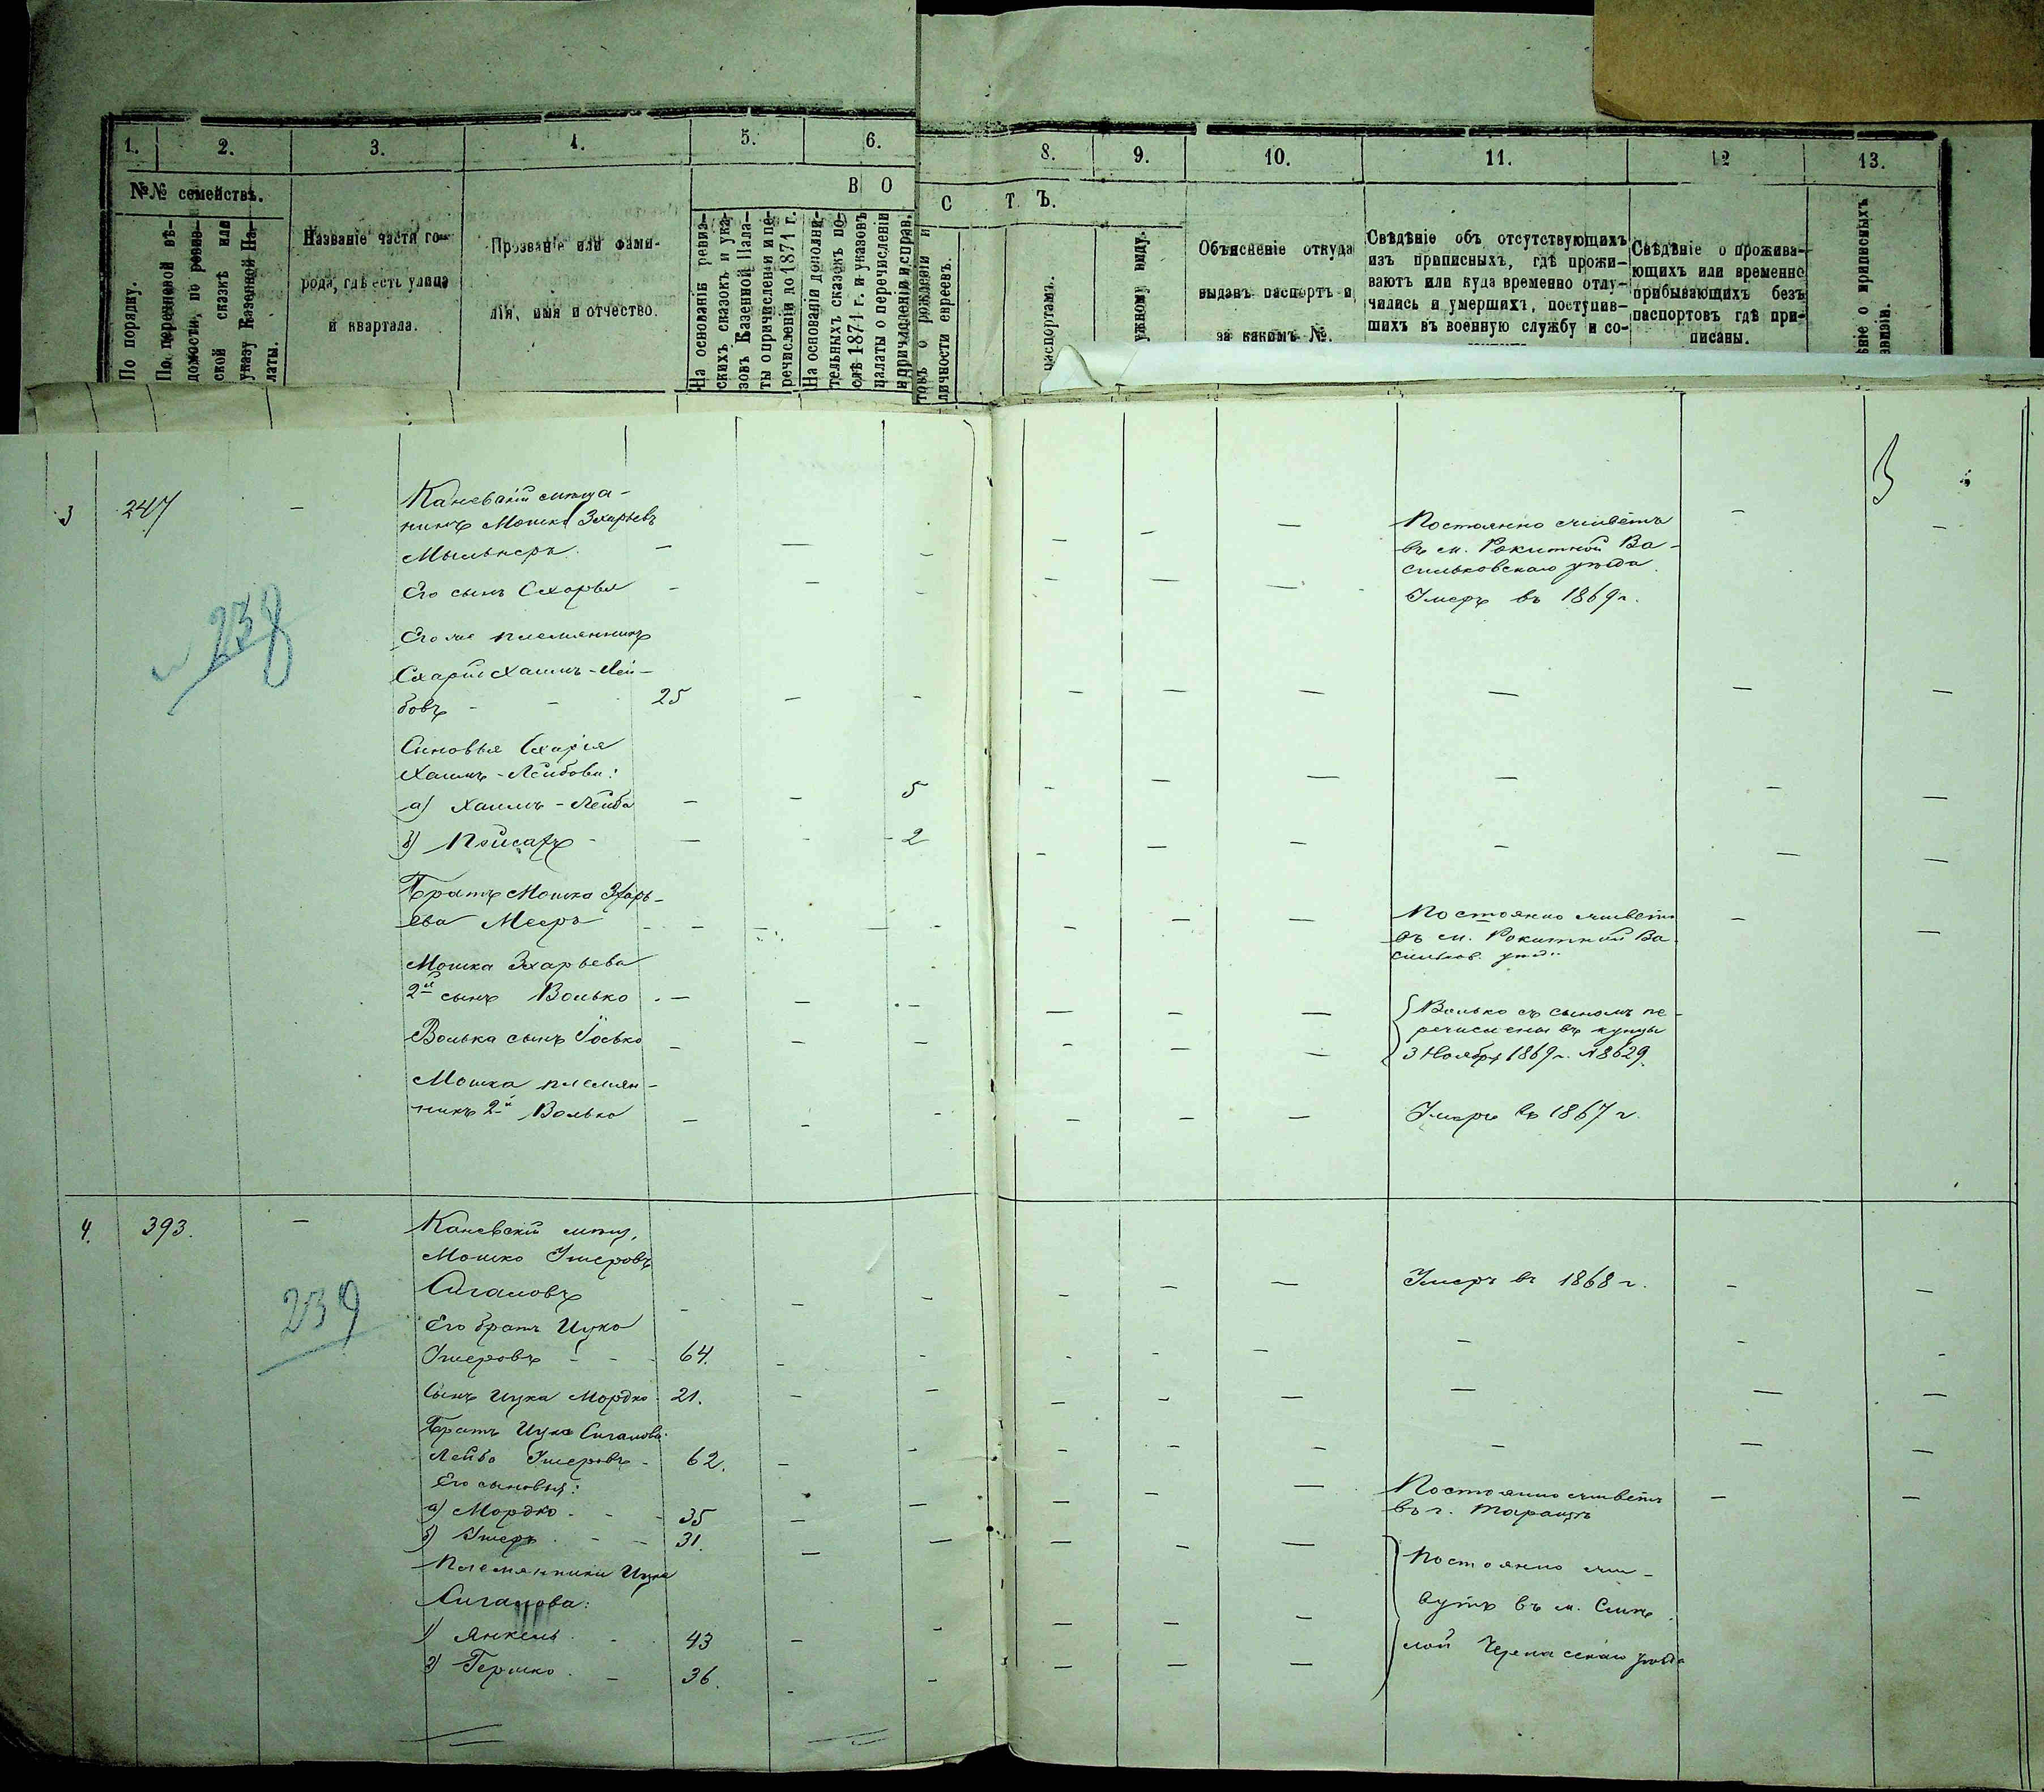 1.
2.
3.
4.
5.
6.
8.
9.
10.
11.
12
13.
№№ семействъ.
В О
С Т Ъ.
По порядку.
По перечневой вѣ-
домости, по ревиз-
ской сказкѣ или
указу Казенной Па-
латы.
Названіе части го-
рода, гдѣ есть улица
и квартала.
Прозваніе или фами-
лія, имя и отчество.
На основаніи ревиз-
скихъ сказокъ и ука-
зовъ Казенной Пала-
ты о причисленіи и пе-
речисленіи до 1871 г.
На основаніи дополни-
тельныхъ сказокъ по-
слѣ 1871 г. и указовъ
палаты о перечисленіи
и причисленіи и справ.
товъ о рожденіи и
личности евреевъ.
паспортамъ.
ужному виду.
Объясненіе откуда
выданъ паспортъ и
за какимъ №.
Свѣдѣніе объ отсутствующихъ
изъ приписныхъ, гдѣ прожи-
ваютъ или куда временно отлу-
чились и умершихъ, поступив-
шихъ въ военную службу и со-
Свѣдѣніе о прожива-
ющихъ или временно
прибывающихъ безъ
паспортовъ гдѣ при-
писаны.
ѣніе о приписныхъ
евизіи.
3
3 247 —
238
Каневскій мѣща-
нинъ Мошко Зхарьевъ
Мыльнеръ.
Постоянно живетъ
въ м. Рокитной Ва-
сильковскаго уѣзда.
Его сынъ Схарья
Умеръ въ 1869 г.
Его же племянникъ
Схарій Хаимъ-Лей-
бовъ - - 25
Сыновья Схарія
Хаимъ-Лейбова:
а) Хаимъ-Лейба — — 5
б) Пейсахъ - — - 2
Братъ Мошка Зхарь-
ева Мееръ
Постоянно живетъ
въ м. Рокитной Ва-
сильков. уѣз.
Мошка Зхарьева
2й сынъ Волько
Волька сынъ Іосько
Волько съ сыномъ пе-
речислены въ купцы
3 Ноября 1869 г. №8629.
Мошка племян-
никъ 2й Волько
Умеръ въ 1867 г.
4. 393. —
239
Каневскій мѣщ.
Мошко Ушеровъ
Сигаловъ
Умеръ въ 1868 г.
Его братъ Ицко
Ушеровъ - - 64.
Сынъ Ицка Мордко 21.
Братъ Ицка Сигалова
Лейба Ушеровъ - 62.
Его сыновья:
а) Мордко. - - 35
Постоянно живетъ
въ г. Таращѣ
б) Ушеръ. - - 31.
Племянники Ицка
Сигалова:
1) Янкель. - 43
2) Гершко. - 36.
Постоянно жи-
вутъ въ м. Смѣ-
лой Черкасскаго уѣзда